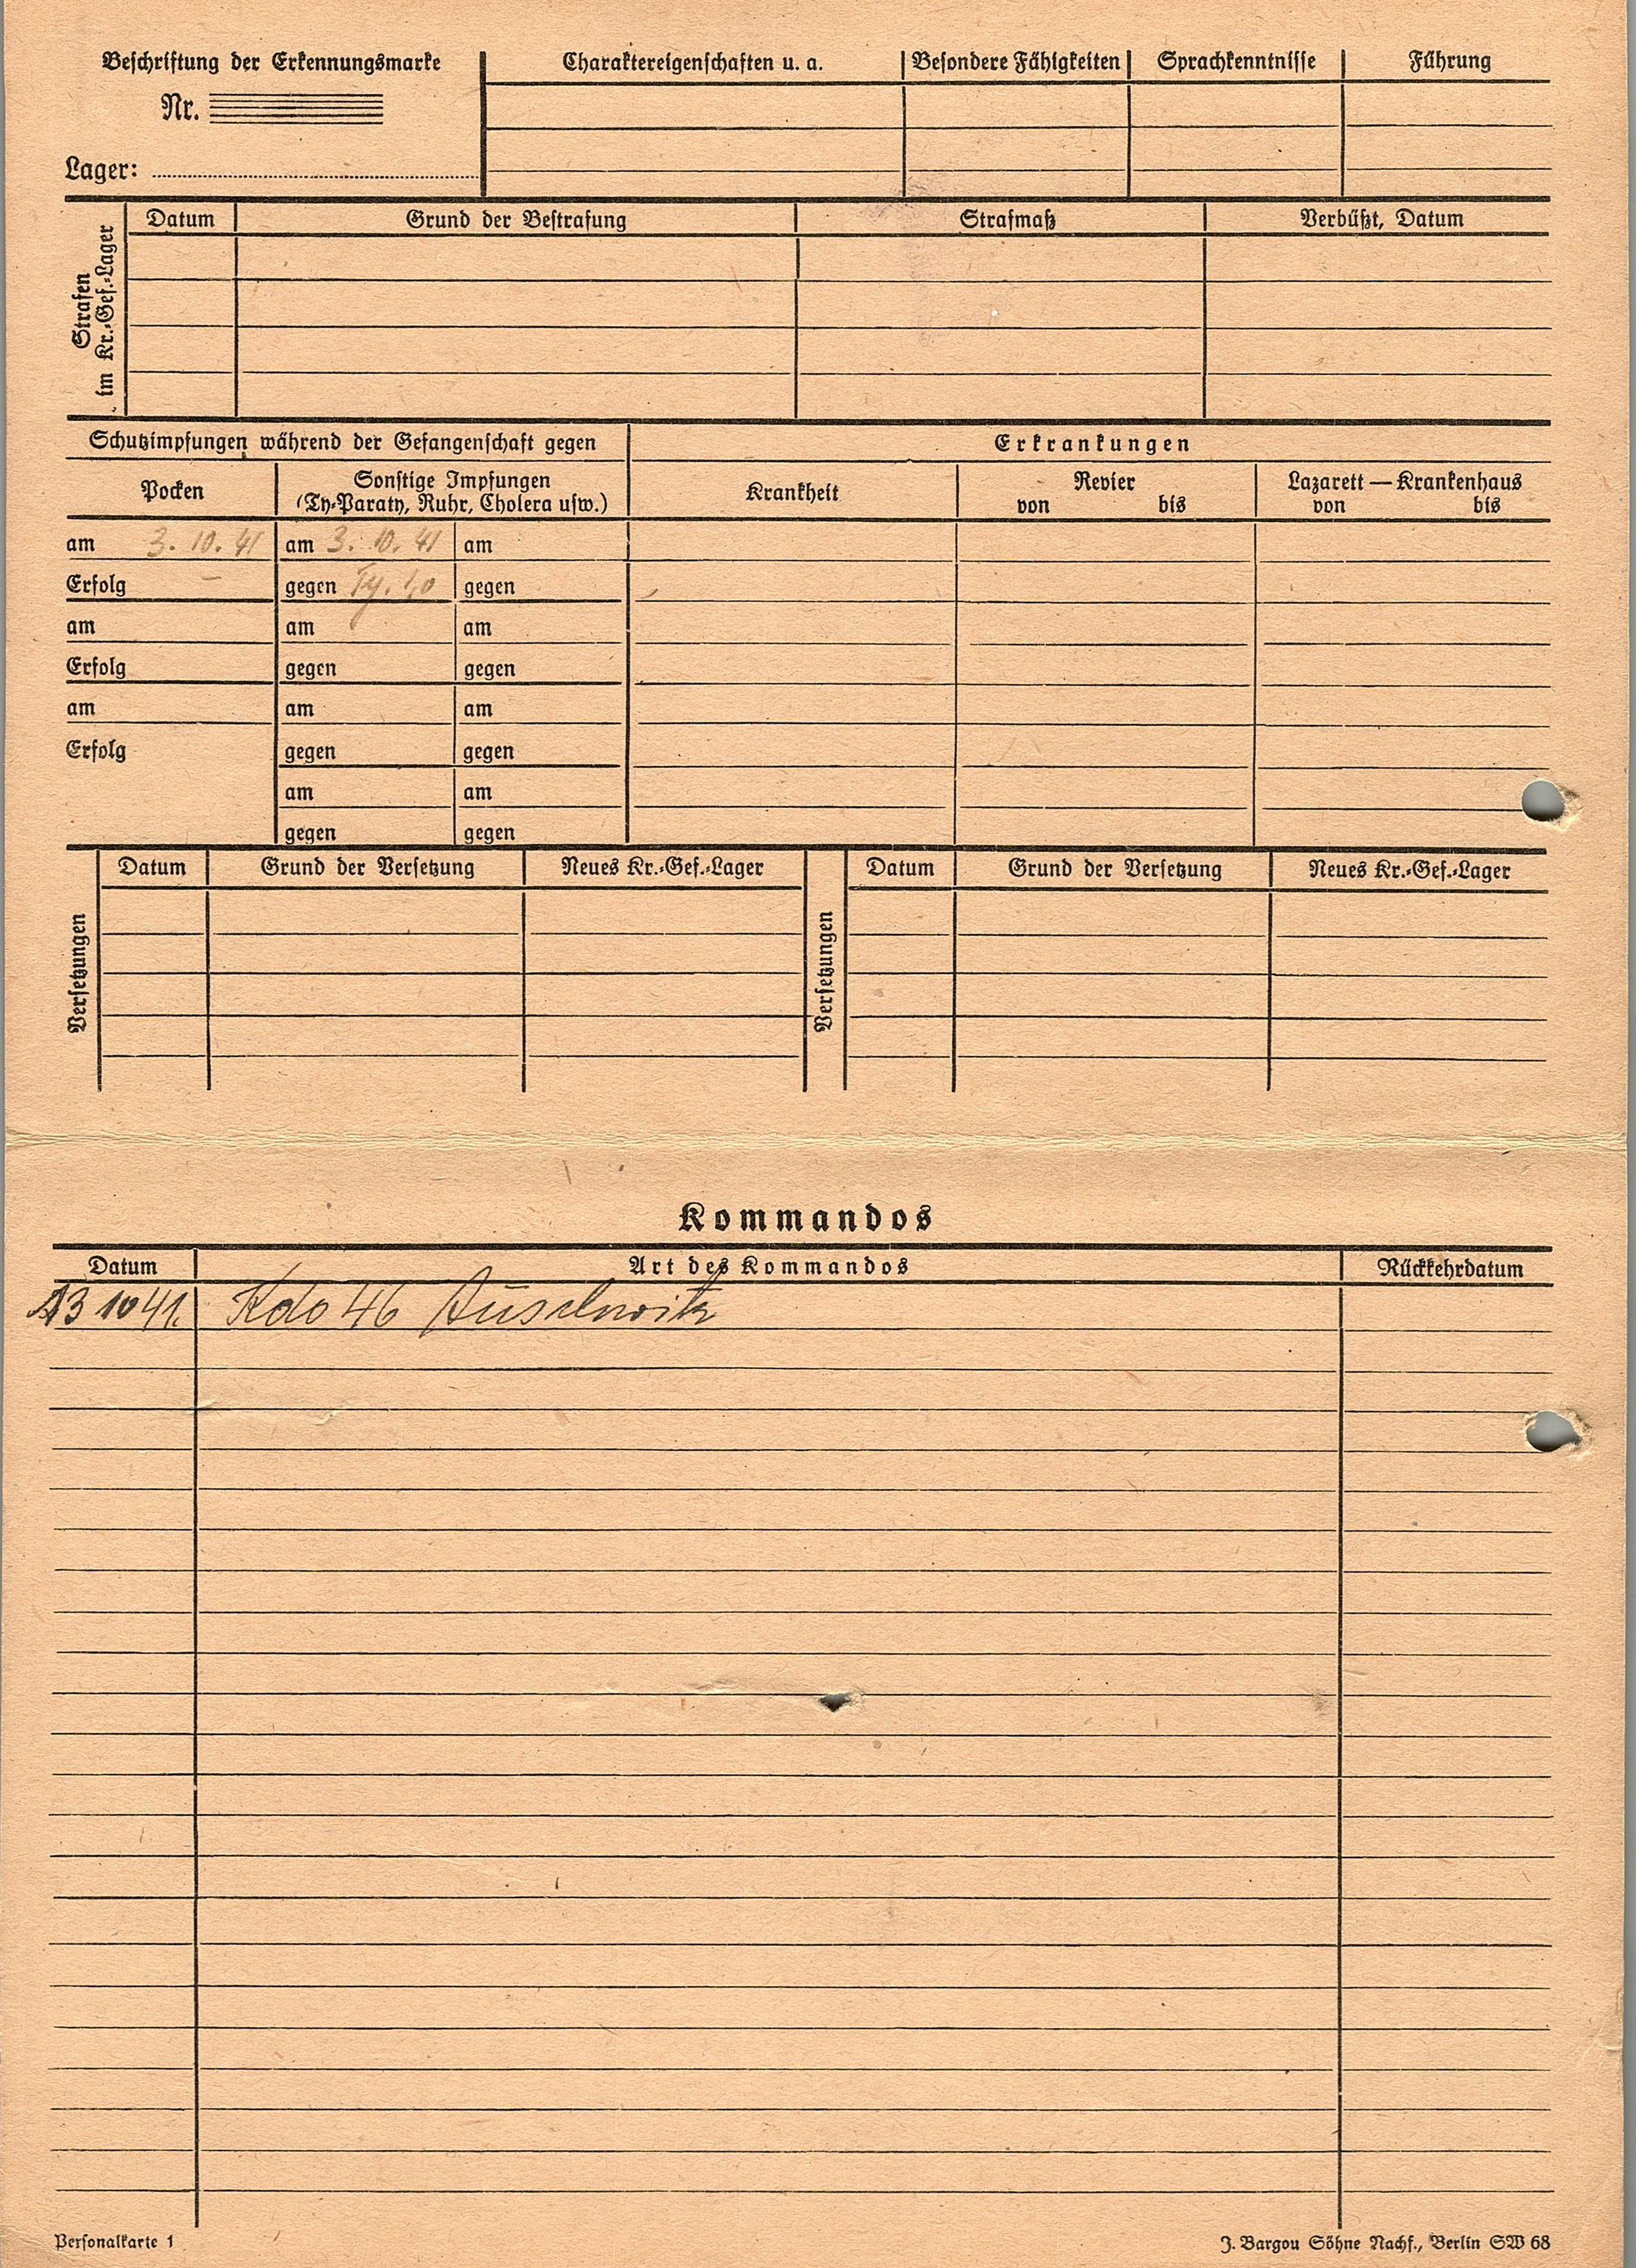 Beschriftung der Erkennungsmarke
Nr.
Lager:
Charaktereigenschaften u. a.
Besondere Fähigkeiten
Sprachkenntnisse
Führung
Strafen
im Kr.-Gef.-Lager
Datum
Grund der Bestrafung
Strafmaß
Verbüßt, Datum
Schutzimpfungen während der Gefangenschaft gegen
Erkrankungen
Pocken
Sonstige Impfungen
(Ty-Paraty, Ruhr, Cholera usw.)
Krankheit
Revier
von bis
Lazarett — Krankenhaus
von bis
am 3. 10. 41 am 3. 10. 41 am
Erfolg – gegen Ty. gegen
am am am
Erfolg gegen gegen
am am am
Erfolg gegen gegen
am am
gegen gegen
Versetzungen
Datum
Grund der Versetzung
Neues Kr.-Gef.-Lager
Versetzungen
Datum
Grund der Versetzung
Neues Kr.-Gef.-Lager
Kommandos
Datum Art des Kommandos Rückkehrdatum
13 10 41. Kdo 46 Auschwitz
Personalkarte 1
J. Bargou Söhne Nachf., Berlin SW 68